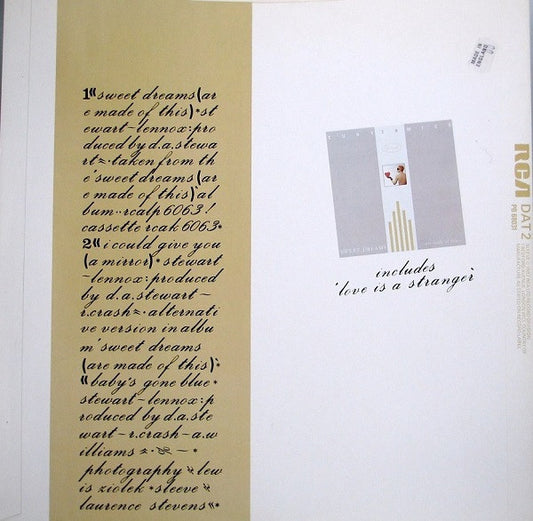 1 sweet dreams (ar
e made of this) • st
ewart - lennox: pro
duced by d.a.stewa
rt • taken from th
e 'sweet dreams (ar
e made of this)' al
bum • rcalp 6063!
cassette rcak 6063 •
2 i could give you
(a mirror) • stewart
- lennox: produced
by d.a.stewart -
r.crash • alternati
ve version in albu
m 'sweet dreams
(are made of this)' •
" baby's gone blue •
stewart - lennox: p
roduced by d.a.ste
wart - r.crash - a.w
illiams
photography • lew
is ziolek • sleeve
laurence stevens •
MADE IN
ENGLAND
EURYTHMICS
SWEET DREAMS
includes
'love is a stranger'
RCA DAT 2
PB 68031